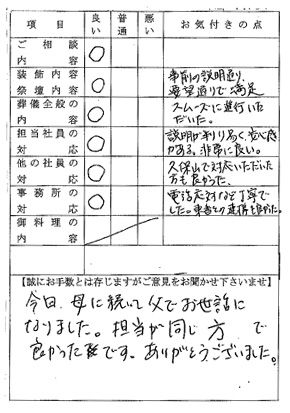 項目 良い 普通 悪い お気付きの点
ご相談内容 ○
装飾内容 祭壇内容 ○ 事前の説明通り、
要望通りで満足
葬儀全般の内容 ○ スムーズに進行いた
だいた。
担当社員の対応 ○ 説明が判り易く、安心感
がある。非常に良い。
他の社員の対応 ○ 久保山で対応いただいた
方も良かった。
事務所の対応 ○ 電話応対など丁寧で
した。業者との連携も良かった。
御料理の内容
【誠にお手数とは存じますがご意見をお聞かせ下さいませ】
今日、母に続いて父でお世話に
なりました。担当が同じ方で
良かったです。ありがとうございました。